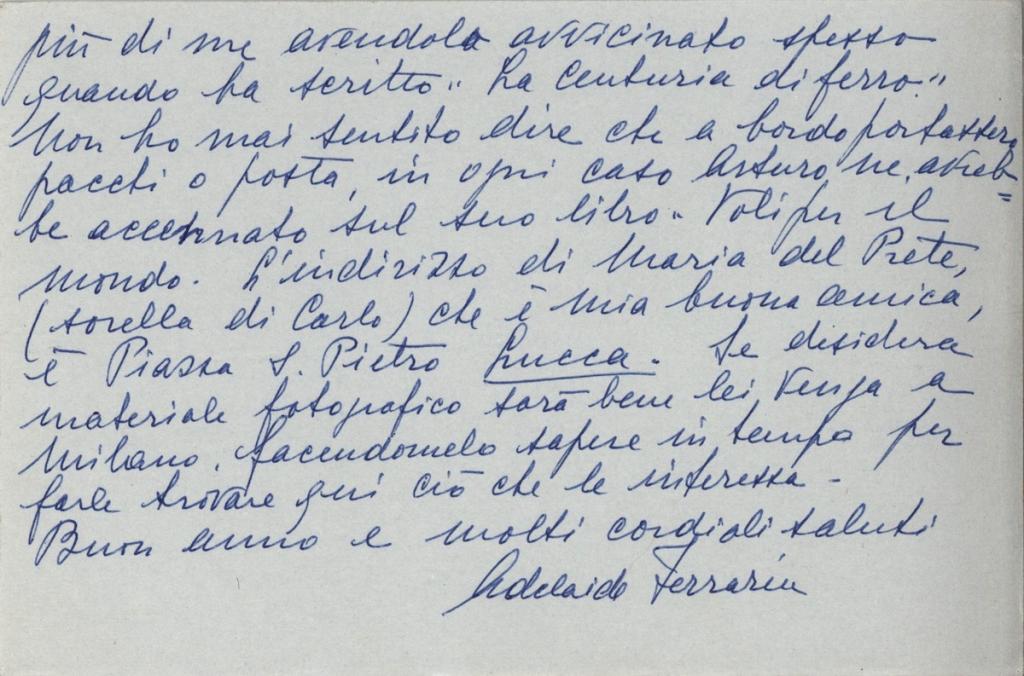 più di me avendolo avvicinato spesso
quando ha scritto " La Centuria di ferro."
Non ho mai sentito dire che a bordo portassero
pacchi o posta, in ogni caso Arturo ne avreb=
be accennato sul suo libro " Voli per il
mondo. L'indirizzo di Maria del Prete,
(sorella di Carlo) che è mia buona amica,
è Piazza S. Pietro Lucca. Se desidera
materiale fotografico sarà bene lei venga a
Milano, facendomelo sapere in tempo per
farle trovare qui ciò che le interessa -
Buon anno e molti cordiali saluti
Adelaide Ferrarin